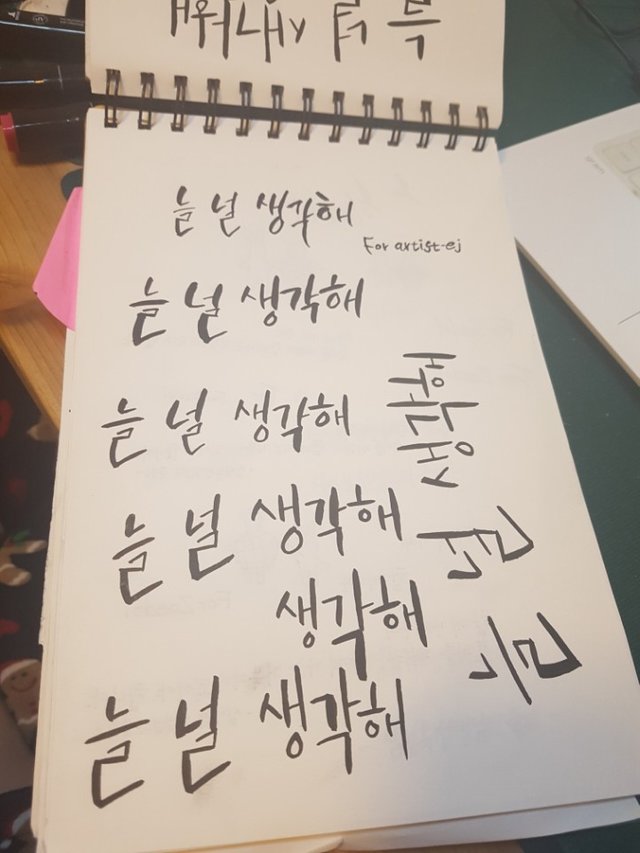 늘 널 생각해
For artist-ej
늘 널 생각해
늘 널 생각해
늘 널 생각해
생각해
늘 널 생각해
늘 널 생각해